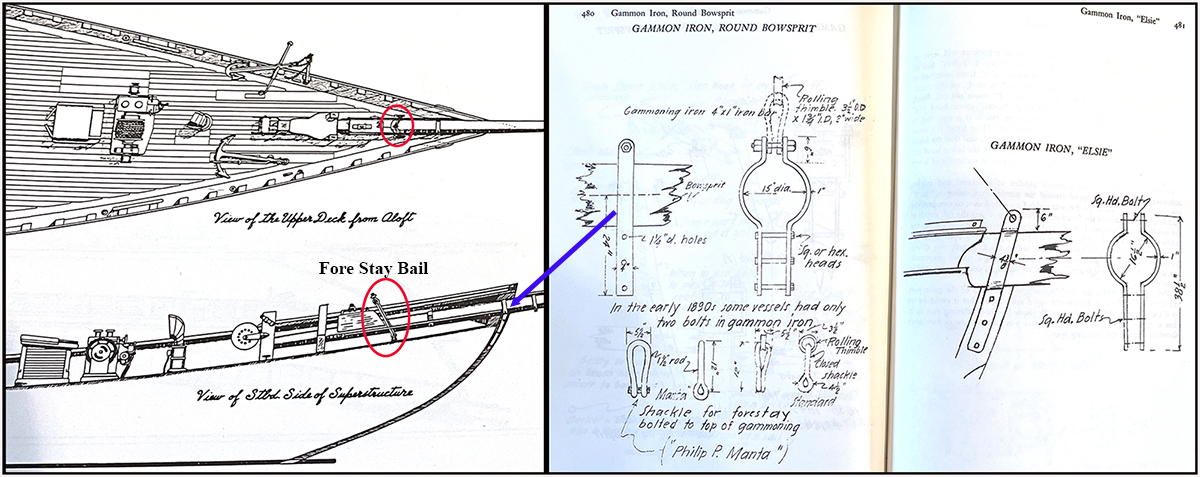 View of the Upper Deck from Aloft
Fore Stay Bail
View of Stbd. Side of Superstructure
480 Gammon Iron, Round Bowsprit
GAMMON IRON, ROUND BOWSPRIT
Gammoning iron 4"x1" iron bar
Rolling
thimble. 3½" O.D
2" wide
6"
Bowsprit
15" dia.
1"
24"
1¼" d. holes
Sq. or hex.
heads
In the early 1890s some vessels had only
two bolts in gammon iron.
3½"
Rolling
Thimble
1½" rod
closed
shackle
4½"
"Manta"
Standard
Shackle for forestay
bolted to top of gammoning
("Philip P. Manta")
Gammon Iron, "Elsie" 481
GAMMON IRON, "ELSIE"
Sq. Hd. Bolt
6"
16½"
1"
Sq. Hd. Bolts